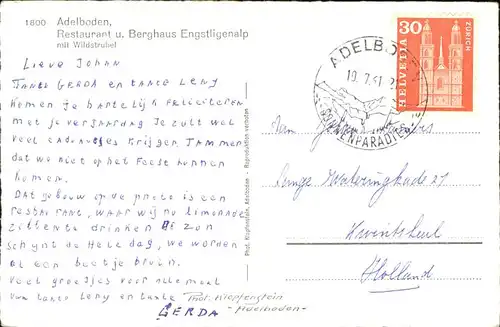 1800 Adelboden,
Restaurant u. Berghaus Engstligenalp
mit Wildstrubel
Lieve Johan
Tante Gerda en tante Leny
komen je hartelijk feliciteren
met je verjaardag Je zult wel
veel cadeautjes krijgen. Jammer
dat we niet op het feest kunnen
komen.
Dat gebouw op de photo is een
restaurant, waar wij nu limonade
zittente drinken De zon
schijnt de hele dag, we worden
al een beetje bruin.
Veel groetjes voor allemaal
van tante Leny en tante
GERDA
Phot. Klopfenstein
- Adelboden -
Phot. Klopfenstein, Adelboden - Reproduktion verboten
ADELBODEN
19.7.61
HELVETIA
30
ZÜRICH
Lange Wateringkade 21
Kwintsheul
Holland